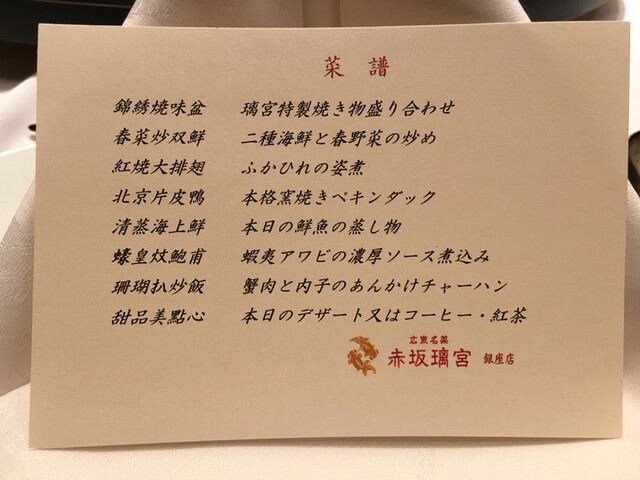 菜 譜
錦綉焼味盆 璃宮特製焼き物盛り合わせ
春菜炒双鮮 二種海鮮と春野菜の炒め
紅焼大排翅 ふかひれの姿煮
北京片皮鴨 本格窯焼きペキンダック
清蒸海上鮮 本日の鮮魚の蒸し物
蠔皇炆鮑甫 蝦夷アワビの濃厚ソース煮込み
珊瑚扒炒飯 蟹肉と内子のあんかけチャーハン
甜品美點心 本日のデザート又はコーヒー・紅茶
広東名菜
赤坂璃宮 銀座店